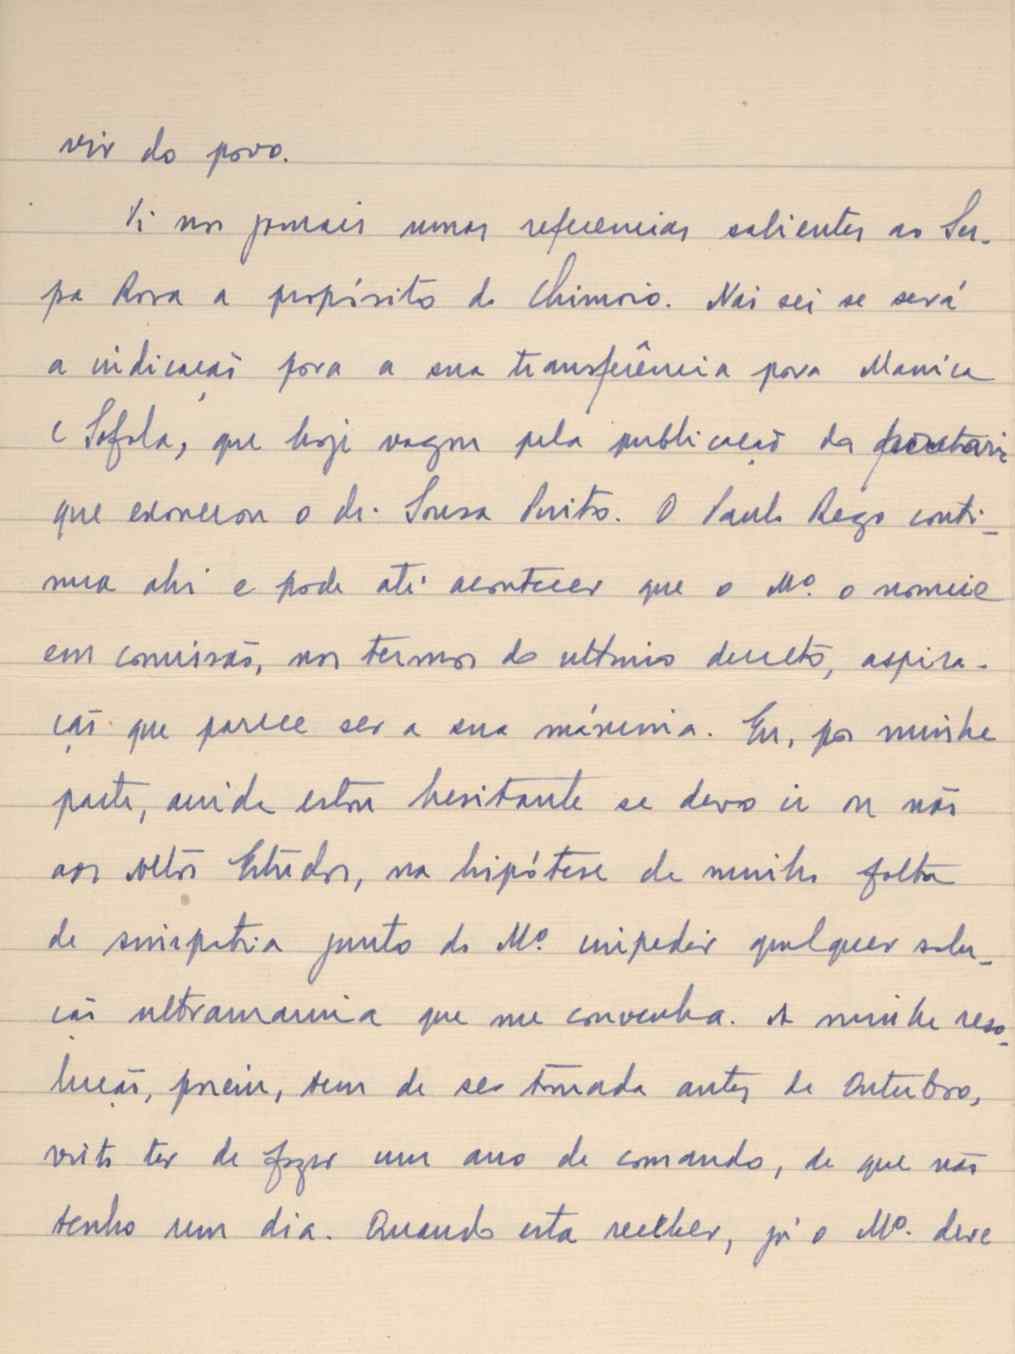 vir do povo.
Vi nos jornais umas referencias salientes ao Ser-
pa Rosa a propósito do Chimoio. Não sei se será
a indicação para a sua transferência para Manica
e Sofala, que hoje vagou pela publicação da portaria
que exonerou o dr. Sousa Pinto. O Paulo Rego conti-
nua ahi e pode até acontecer que o Mº. o nomeie
em comissão, nos termos do ultimo decreto, aspira-
ção que parece ser a sua máxima. Eu, por minha
parte, ainda estou hesitante se devo ir ou não
aos Altos Estudos, na hipótese da minha falta
de simpatia junto do Mº. impedir qualquer solu-
ção ultramarina que me convenha. A minha reso-
lução, porem, tem de ser tomada antes de Outubro,
visto ter de fazer um ano de comando, de que não
tenho um dia. Quando esta receber, já o Mº. deve